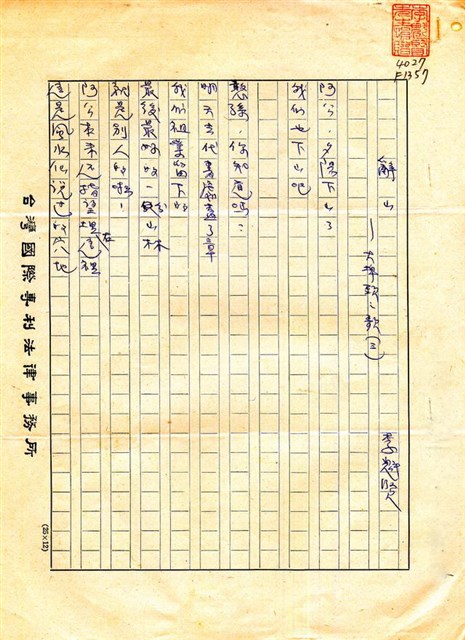 4027
F1357
山
李魁賢
阿公,夕陽下山了
我們也下山吧
憨孫,你知道嗎?
明天去代書處蓋了章
我們祖業留下的
最後最好的一份山林
就是別人的啦!
阿公本來 望埋在這裡
這是風水仙說過的穴地
台灣國際專利法律事務所
(25×12)